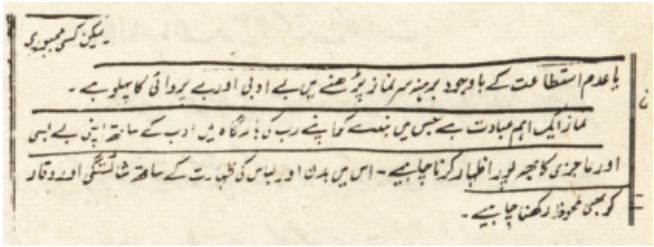 لیکن کسی مجبوری
یا عدم استطاعت کے باوجود برہنہ سر نماز پڑھنے میں بے ادبی اور بے پروائی کا پہلو ہے۔
نماز ایک اہم عبادت ہے جس میں بندے کو اپنے رب کی بارگاہ میں ادب کے ساتھ اپنی بے بسی
اور عاجزی کا بھرپور اظہار کرنا چاہیے۔ اس میں بدن اور لباس کی طہارت کے ساتھ شائستگی اور وقار
کو بھی ملحوظ رکھنا چاہیے۔